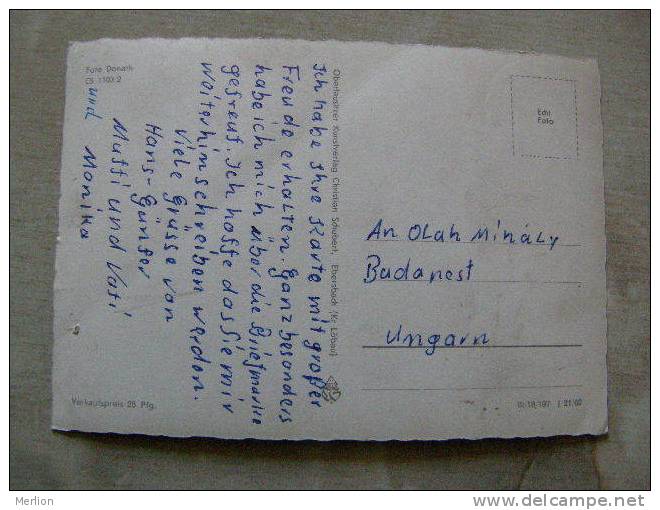 Foto Donath
CS 1103 2
Ich habe Ihre Karte mit großer
Freude erhalten. Ganz besonders
habe ich mich über die Briefmarke
gefreut. Ich hoffe das Sie mir
weiterhin schreiben werden.
Viele Grüsse von
Hans-Günter
Mutti und Vati
und Monika
Verkaufspreis 25 Pfg.
Oberlausitzer Kunstverlag Christoph Schubert, Ebersbach (Kr. Löbau)
Echt
Foto
An Olah Mihály
Budapest
Ungarn
III/18/197 I 21/60
Merlion
www.delcampe.net